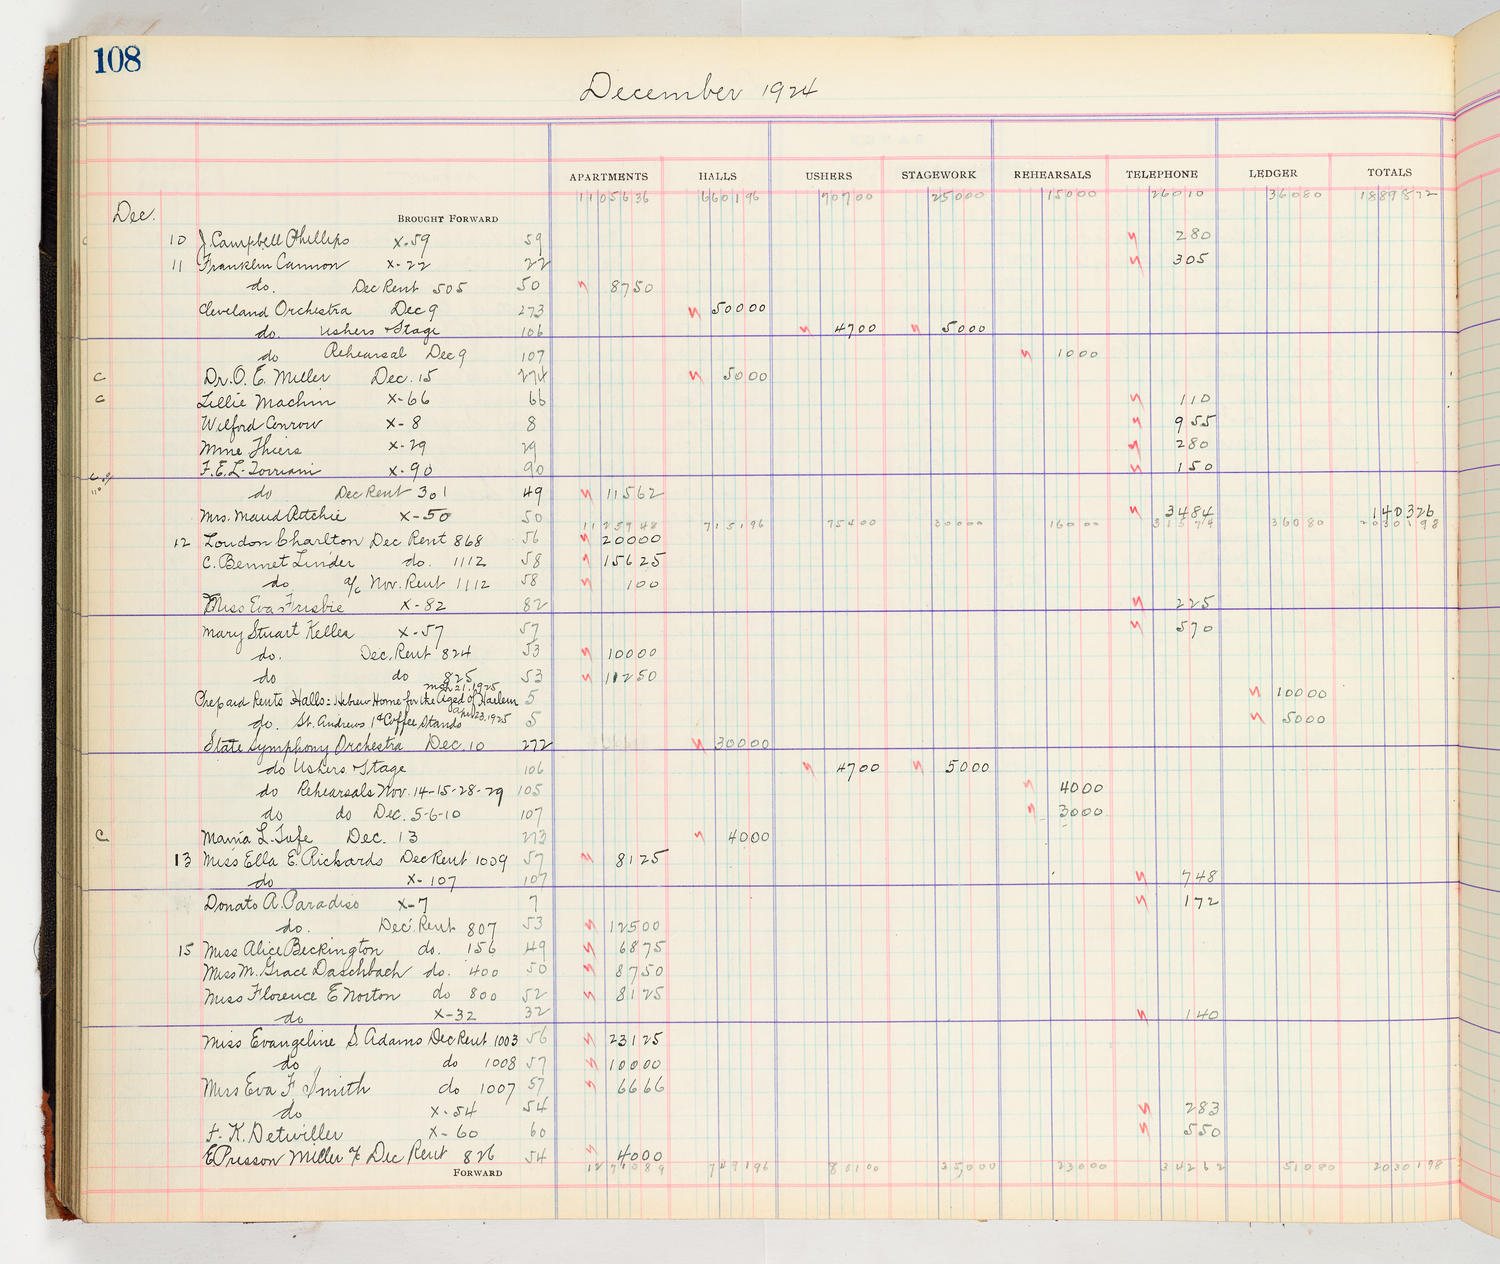 108
December 1924
APARTMENTS HALLS USHERS STAGEWORK REHEARSALS TELEPHONE LEDGER TOTALS
11056 36 6601 96 707 00 250 00 150 00 260 10 360 80 18898 72
Dec. BROUGHT FORWARD
10 J. Campbell Phillips X-59 59 2 80
11 Franklin Cannon X-22 22 3 05
do. Dec Rent 505 50 87 50
Cleveland Orchestra Dec 9 273 500 00
do. Ushers + Stage 106 47 00 50 00
do Rehearsal Dec 9 107 10 00
C Dr. O. E. Miller Dec. 15 274 50 00
C Lillie Machin X-66 66 1 10
Wilford Conrow X-8 8 9 55
Mme Thiers X-29 29 2 80
F. E. L. Torriani X-90 90 1 50
do Dec Rent 301 49 115 62
Mrs. Maud Ritchie X-50 50 34 84 1403 26
11259 48 7151 96 754 00 300 00 160 00 315 74 360 80 20301 98
12 London Charlton Dec Rent 868 56 200 00
C. Bennet Linder do. 1112 58 156 25
do a/c Nov. Rent 1112 58 1 00
Miss Eva Frisbie X-82 82 2 25
Mary Stuart Kellea X-57 57 5 70
do. Dec. Rent 824 53 100 00
do do 825 53 112 50
Mch 21, 1925
Prepaid Rents Halls: Hebrew Home for the Aged of Harlem 5 100 00
Apr 23, 1925
do. St. Andrews 1¢ Coffee Stands 5 50 00
State Symphony Orchestra Dec. 10 272 300 00
do Ushers + Stage 106 47 00 50 00
do Rehearsals Nov. 14-15-28-29 105 40 00
do do Dec. 5-6-10 107 30 00
C Maria L. Tufe Dec. 13 273 40 00
13 Miss Ella E. Rickards Dec Rent 1009 57 81 25
do X-107 107 7 48
Donato A. Paradiso X-7 7 1 72
do. Dec. Rent 807 53 125 00
15 Miss Alice Beckington do. 156 49 68 75
Miss M. Grace Daschbach do. 400 50 87 50
Miss Florence E Norton do 800 52 81 25
do X-32 32 1 40
Miss Evangeline S. Adams Dec Rent 1003 56 231 25
do do 1008 57 100 00
Miss Eva F Smith do 1007 57 66 66
do X-54 54 2 83
F. K. Detwiller X-60 60 5 50
E Presson Miller a/c Dec Rent 826 54 40 00
FORWARD 12710 89 7491 96 801 00 350 00 230 00 342 62 510 80 20301 98